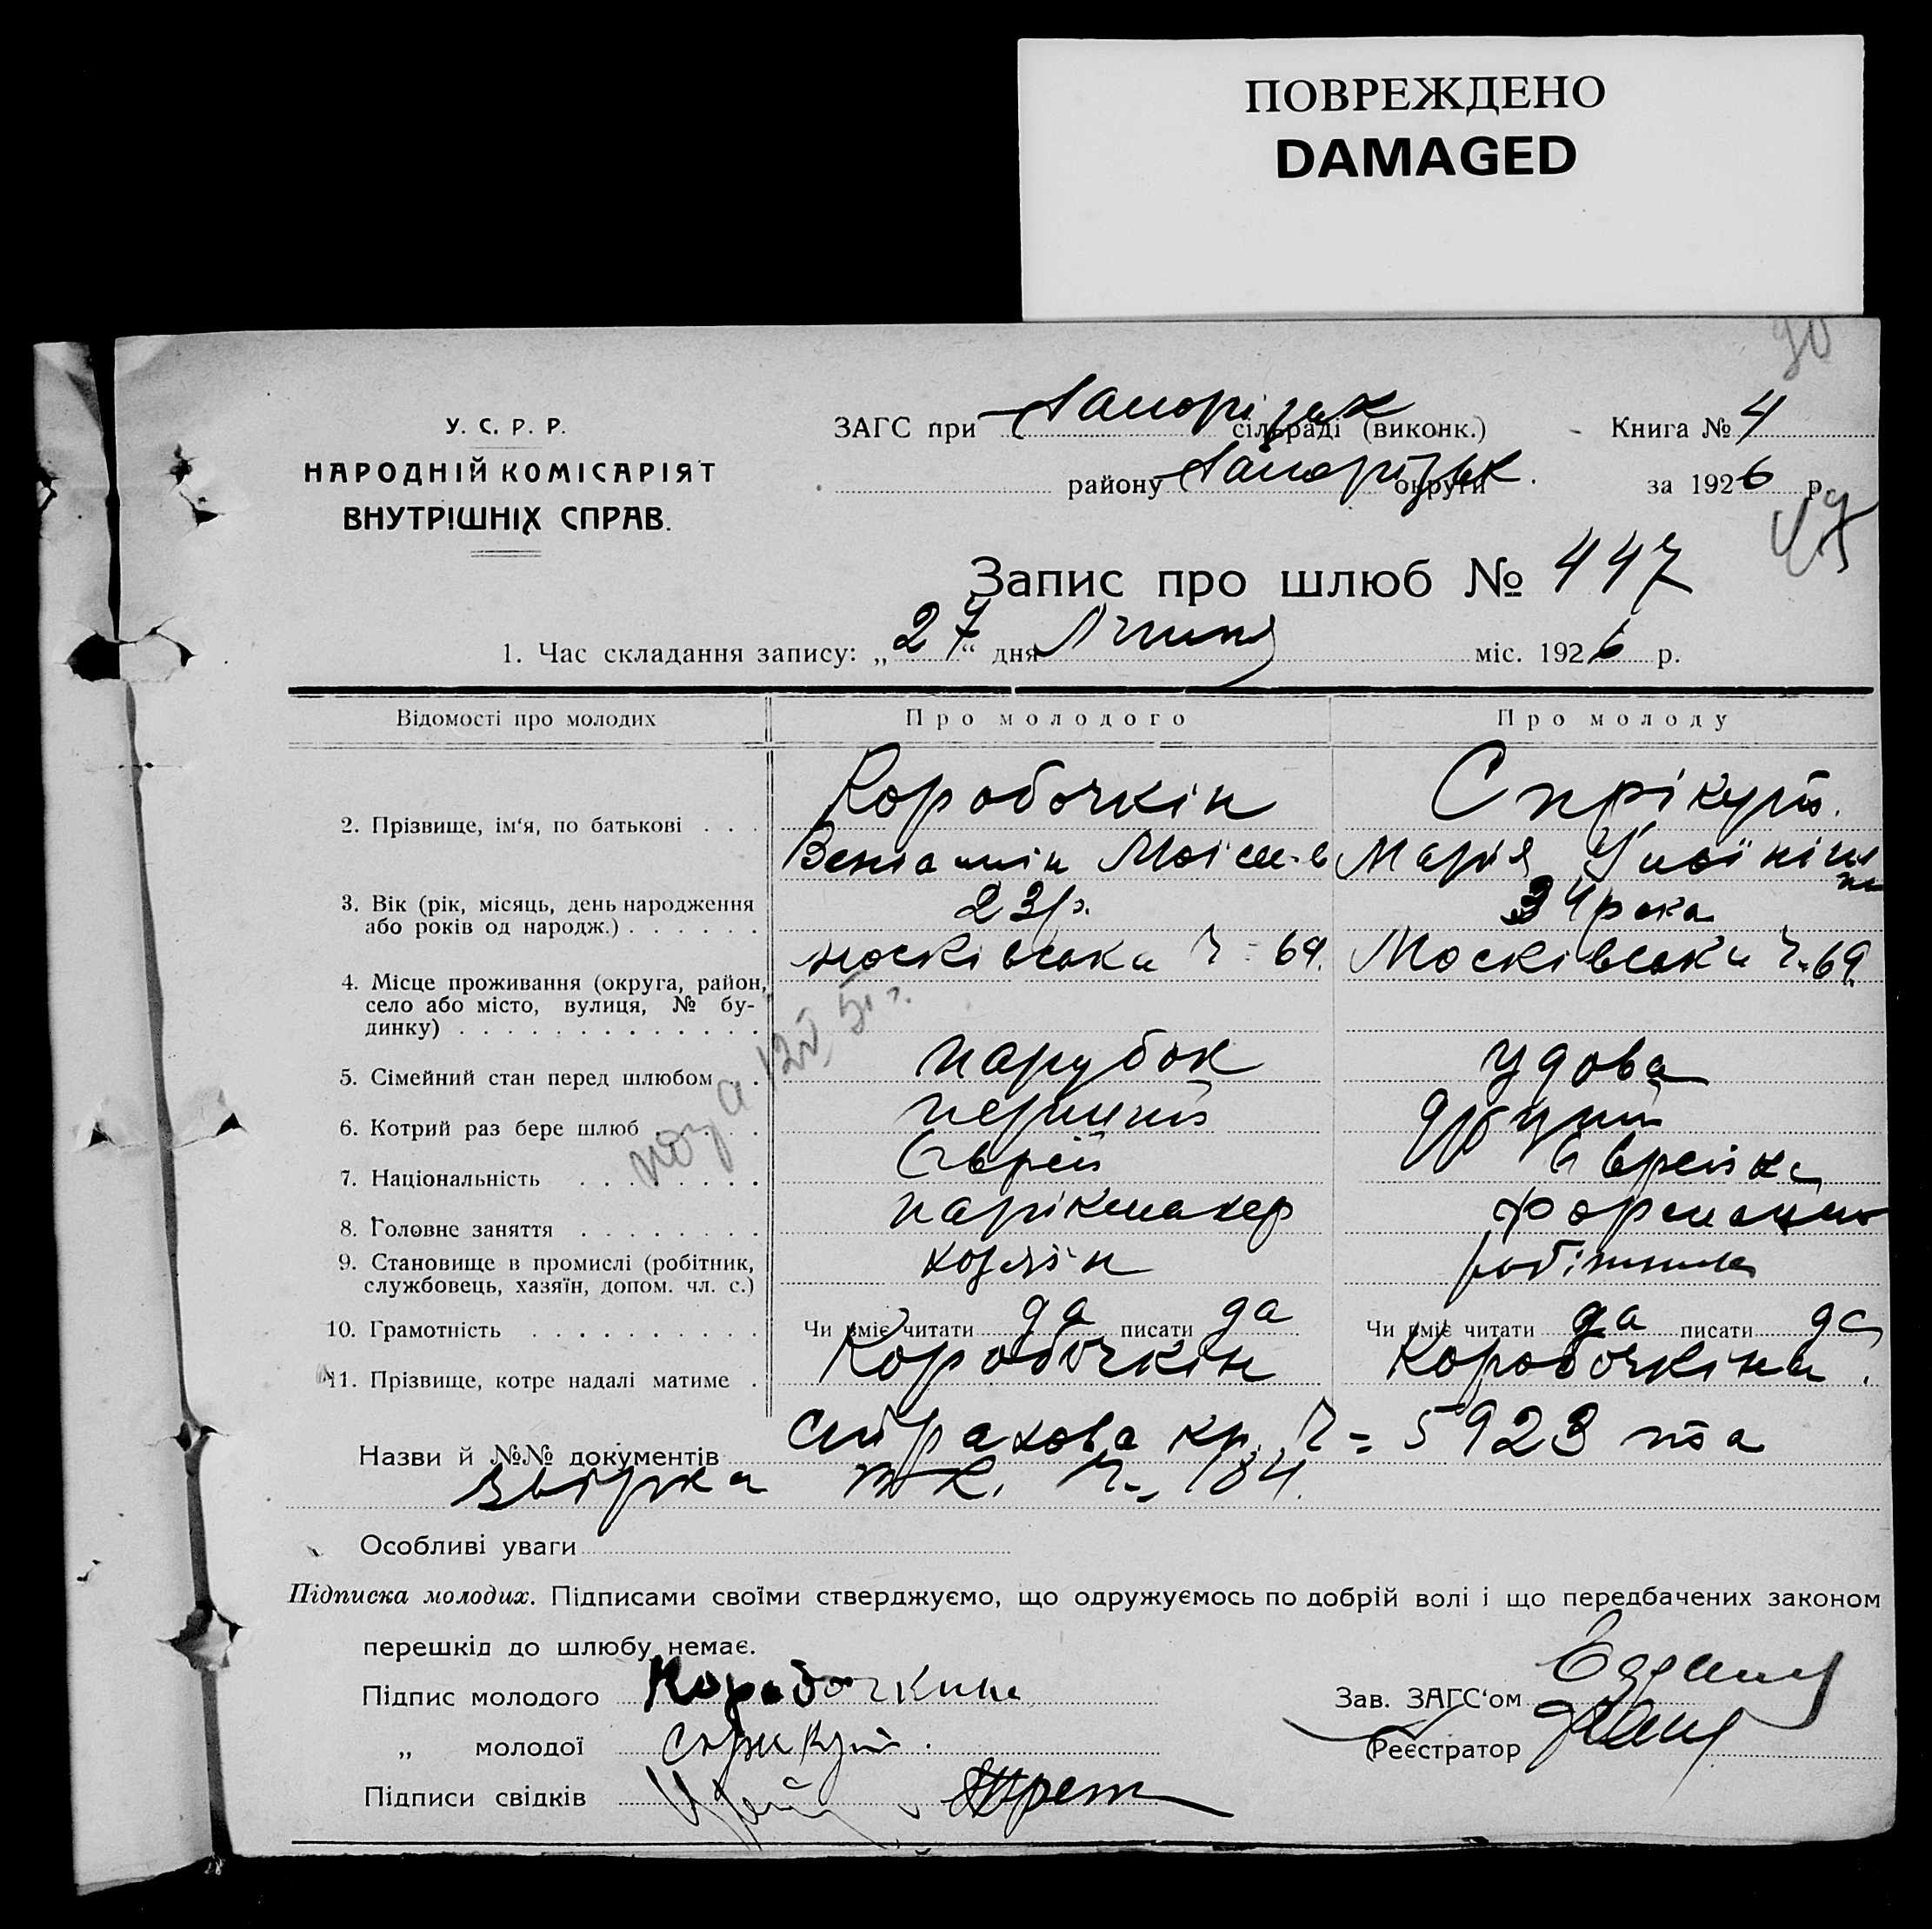 ПОВРЕЖДЕНО
DAMAGED
90
У. С. Р. Р.
НАРОДНІЙ КОМІСАРІЯТ
ВНУТРІШНІХ СПРАВ.
ЗАГС при Запоріzьк сільраді (виконк.) Книга № 4
району Запорізьк. округи за 1926 р.
Запис про шлюб № 447
1. Час складання запису: „27“ дня Липня міс. 1926 р.
Відомості про молодих Про молодого Про молоду
2. Прізвище, ім‘я, по батькові . . . Коробочкін Спрікут
Веніамін Моісе-в Марія
3. Вік (рік, місяць, день народження або років од народж.) . . . . . . 23 р. 34 рока
4. Місце проживання (округа, район, село або місто, вулиця, № будинку) . . . . . . . . . . . . . Московська Ч = 69. Московська Ч. 69
5. Сімейний стан перед шлюбом . . парубок удова
6. Котрий раз бере шлюб . . . . перший другий
7. Національність . . . . . . . . Єврей Єврейка
8. Головне заняття . . . . . . . . парікмахер
9. Становище в промислі (робітник, службовець, хазяїн, допом. чл. с.) хозяїн робітниця
10. Грамотність . . . . . . . . . . Чи вміє читати да писати да Чи вміє читати да писати да
11. Прізвище, котре надалі матиме . Коробочкін Коробочкіна.
Назви й №№ документів страхова кн. Ч = 5923 та
звірка Ч. 184.
Особливі уваги
Підписка молодих. Підписами своїми стверджуємо, що одружуємось по добрій волі і що передбачених законом
перешкід до шлюбу немає.
Підпис молодого Коробочкин Зав. ЗАГС‘ом
„ молодої Спрікут. Реєстратор
Підписи свідків